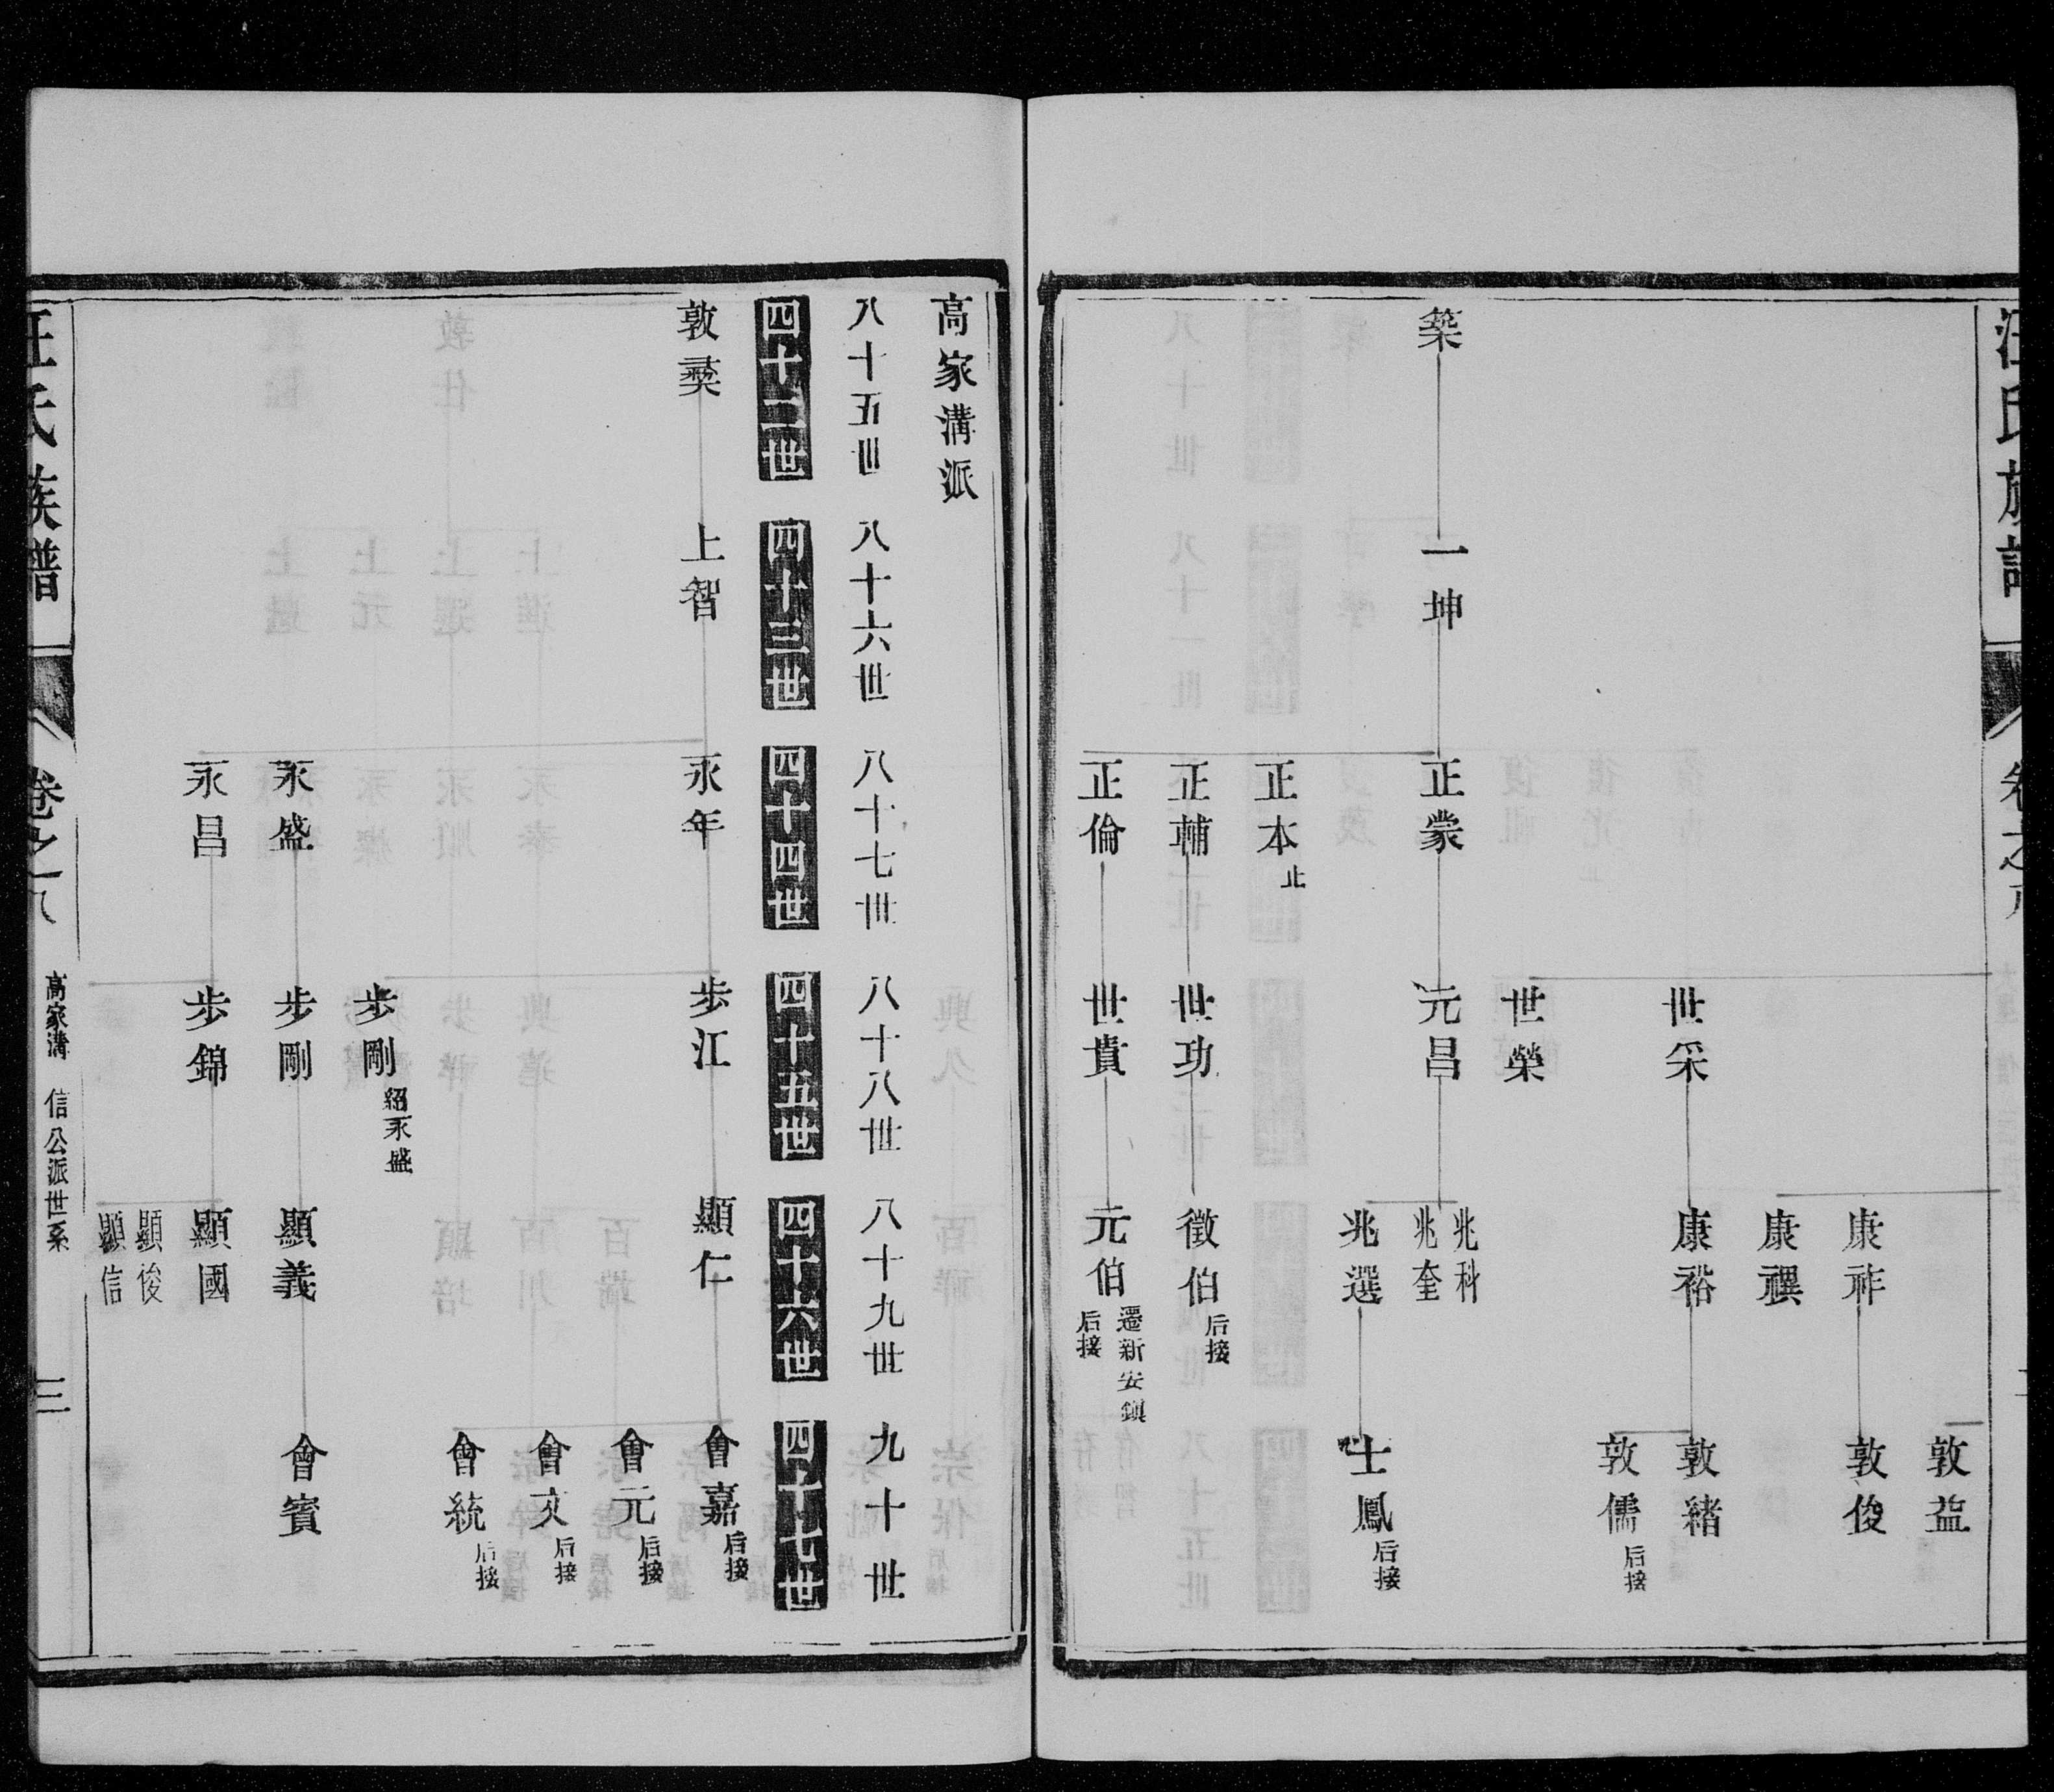 汪氏族譜
卷之八
敦益
康祚
敦俊
康禩
世采
康裕
敦緒
敦儒
后接
世榮
築
一坤
正蒙
元昌
兆科
兆奎
兆選
士鳳
后接
正本
止
正輔
世功
徵伯
后接
正倫
世貴
元伯
遷新安鎮
后接
高家溝派
八十五世
八十六世
八十七世
八十八世
八十九世
九十世
四十二世
四十三世
四十四世
四十五世
四十六世
四十七世
敦彛
上智
永年
步江
顯仁
會嘉
后接
會元
后接
會文
后接
會統
后接
步剛
紹永盛
永盛
步剛
顯義
會賓
永昌
步錦
顯國
顯俊
顯信
汪氏族譜
卷之八
高家溝 信公派世系
三